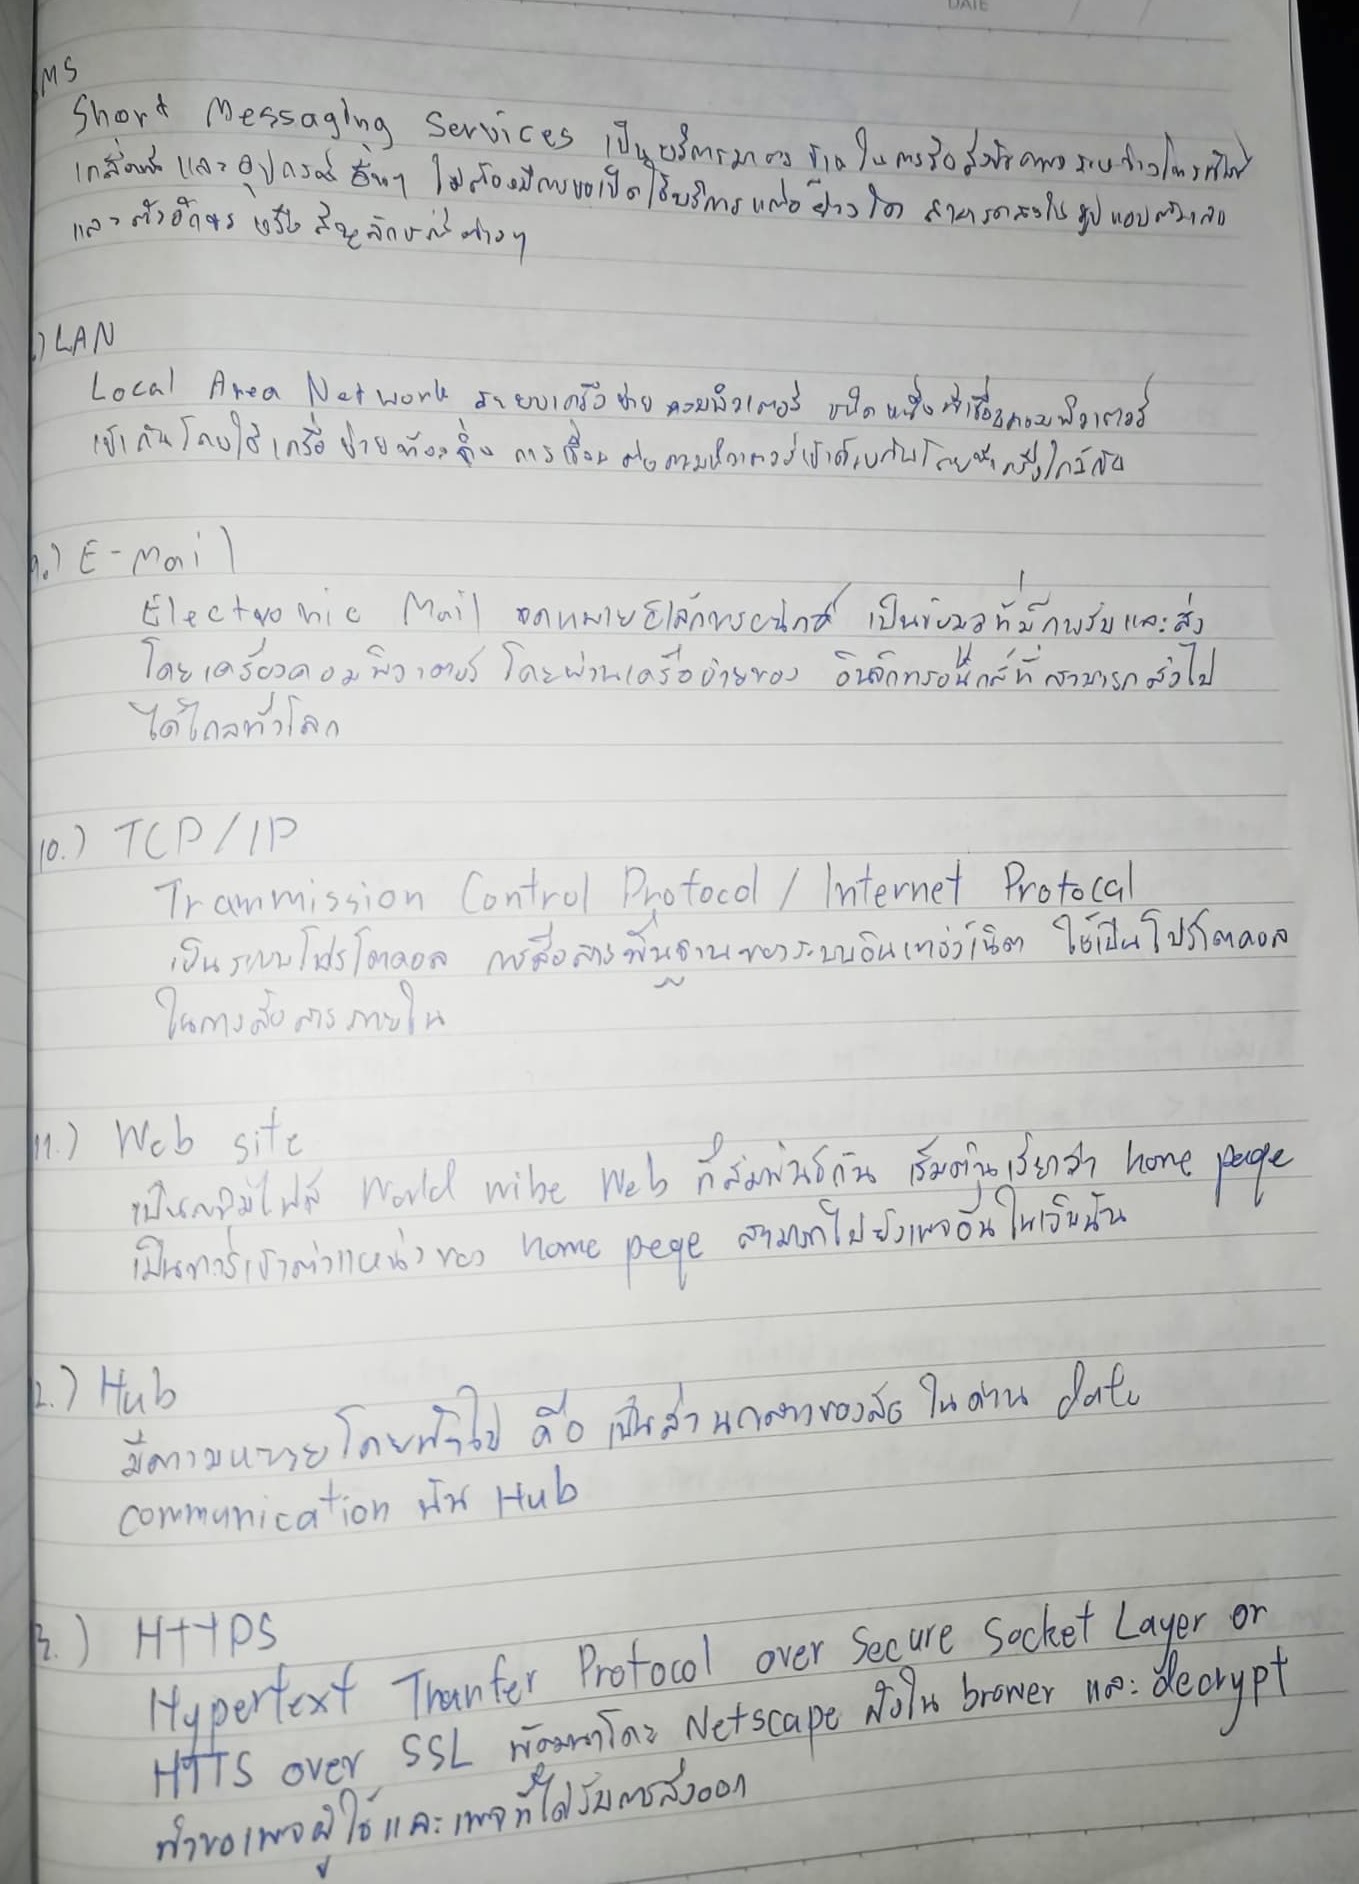 DATE
MS
Short Messaging Services เป็นบริการ ในการรับส่งข้อความ
เคลื่อนที่ และ อุปกรณ์ อื่นๆ ไม่ต้องมีการขอเปิดใช้บริการแต่อย่างใด สามารถส่งในรูปแบบตัวเลข
และ ตัวอักษร หรือ สัญลักษณ์ต่างๆ
.) LAN
Local Area Network ระบบเครือข่าย คอมพิวเตอร์ ชนิดหนึ่ง ที่เชื่อมคอมพิวเตอร์
เข้ากันโดยใช้ เครือข่ายท้องถิ่น การเชื่อมต่อคอมพิวเตอร์เข้าด้วยกันโดย ใกล้กัน
9.) E-Mail
Electronic Mail จดหมายอิเล็กทรอนิกส์ เป็นข้อมูลที่มีการรับและส่ง
โดยเครื่องคอมพิวเตอร์ โดยผ่านเครือข่ายของ อินเล็กทรอนิกส์ที่สามารถส่งไป
ได้ไกลทั่วโลก
10.) TCP/IP
Tranmission Control Protocol / Internet Protocal
เป็นระบบโปรโตคอล การสื่อสารพื้นฐานของระบบอินเทอร์เน็ต ใช้เป็นโปรโตคอล
ในการสื่อสารภายใน
11.) Web site
เป็น World wibe Web ที่สัมพันธ์กัน เริ่มต้นเรียกว่า home page
เป็นการเข้าตำแหน่งของ home page สามารถไปยังเพจอื่นในเว็บนั้น
2.) Hub
มีความหมายโดยทั่วไป คือ เป็นส่วนกลางของล้อ ในด้าน data
communication นั้น Hub
3.) HTTPS
Hypertext Thanfer Protocol over Secure Socket Layer or
HTTS over SSL พัฒนาโดย Netscape ฝังใน brower และ decrypt
คำขอเพจผู้ใช้และเพจที่ได้รับการส่งออก